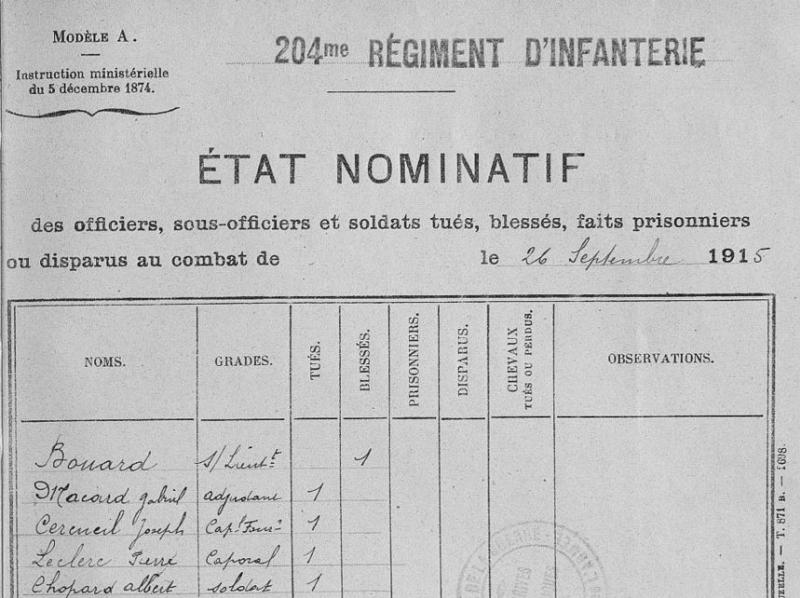 MODÈLE A.
Instruction ministérielle
du 5 décembre 1874.
204me RÉGIMENT D'INFANTERIE
ÉTAT NOMINATIF
des officiers, sous-officiers et soldats tués, blessés, faits prisonniers
ou disparus au combat de le 26 Septembre 1915
NOMS. GRADES. TUÉS. BLESSÉS. PRISONNIERS. DISPARUS. CHEVAUX TUÉS OU PERDUS. OBSERVATIONS.
Bouard s/Lieutt 1
Macard gabriel adjudant 1
Cercueil Joseph Capl Fourr 1
Leclerc Pierre Caporal 1
Chopard albert soldat 1
T. 871 B. — 1698.